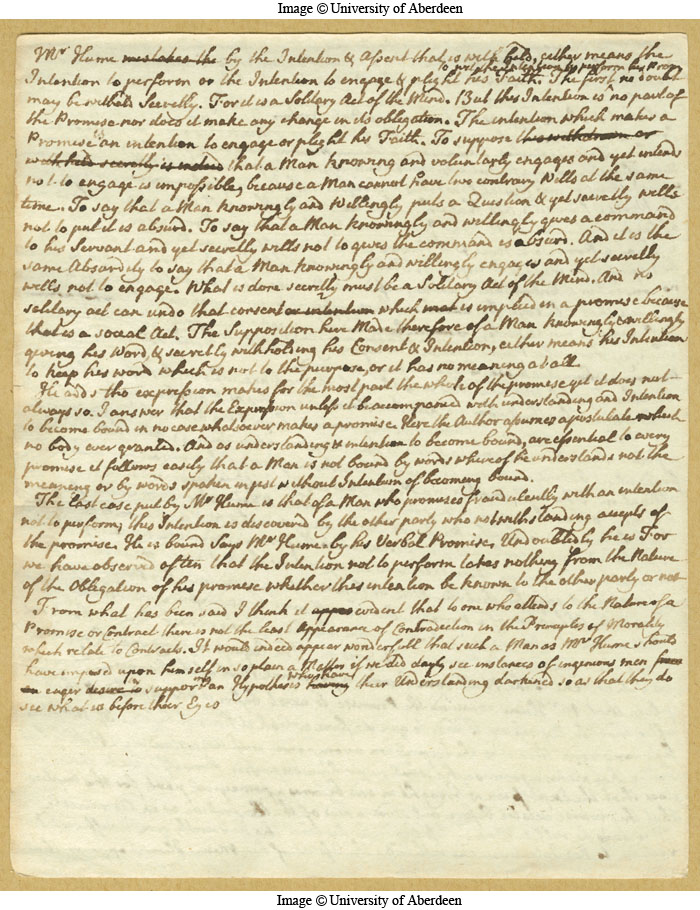 Image © University of Aberdeen
Mr Hume mistakes the by the Intention & Assent that is with held, either means the
Intention to perform or the Intention to engage & plight his Faith. The first no doubt
may be witheld Secretly. For it is a Solitary Act of the Mind. But this Intention is no part of
the Promise nor does it make any change in its obligation. The intention which makes a
Promise is an intention to engage or plight his Faith. To suppose this withdrawn or
with held secretly is indeed that a Man knowing and voluntarly engages and yet intends
not to engage is impossible, because a Man cannot have two contrary Wills at the same
time. To say that a Man knowingly and Willingly puts a Question & yet secretly wills
not to put it is absurd. To say that a Man knowingly and willingly gives a command
to his Servant and yet secretly wills not to give the command is absurd. And it is the
same Absurdity to say that a Man knowingly and willingly engages and yet secretly
wills not to engage. What is done secretly must be a Solitary Act of the Mind. And no
solitary act can undo that consent or intention which is implied in a promise because
that is a social Act. The Supposition here Made therefore of a Man knowingly & willingly
giving his Word, & secretly withholding his Consent & Intention, either means his Intention
to keep his word which is not to the purpose, or it has no meaning at all
He adds tho expression makes for the most part the whole of the promise yet it does not
always so. I answer that the Expression unless it be accompanied with understanding and Intention
to become bound in no case whatsoever makes a promise. Here the Author assumes a postulate which
no body ever granted. And as understanding & intention to become bound, are essential to every
promise it follows easily that a Man is not bound by words whereof he understands not the
meaning or by words spoken in jest without Intention of becoming bound.
The last case put by Mr Hume is that of a Man who promises fraudulently with an intention
not to perform, this Intention is discovered by the other party who notwithstanding accepts of
the promise. He is bound says Mr Hume by his Verbal Promise, Undoubtedly he is For
we have observed often that the Intention not to perform takes nothing from the Nature
of the Obligation of his promise whether this intention be known to the other party or not
From what has been said I think it appea evident that to one who attends to the Nature of a
Promise or Contract there is not the least Appearance of Contradiction in the Principles of Morality
which relate to Contracts. It would indeed appear wonderfull that such a Man as Mr Hume should
have imposed upon himself in so plain a Matter if we did dayly see instances of ingenious men
eager desire in support of an Hypothesis who have having their Understanding darkened so as that they do
see what is before their Eyes
Image © University of Aberdeen